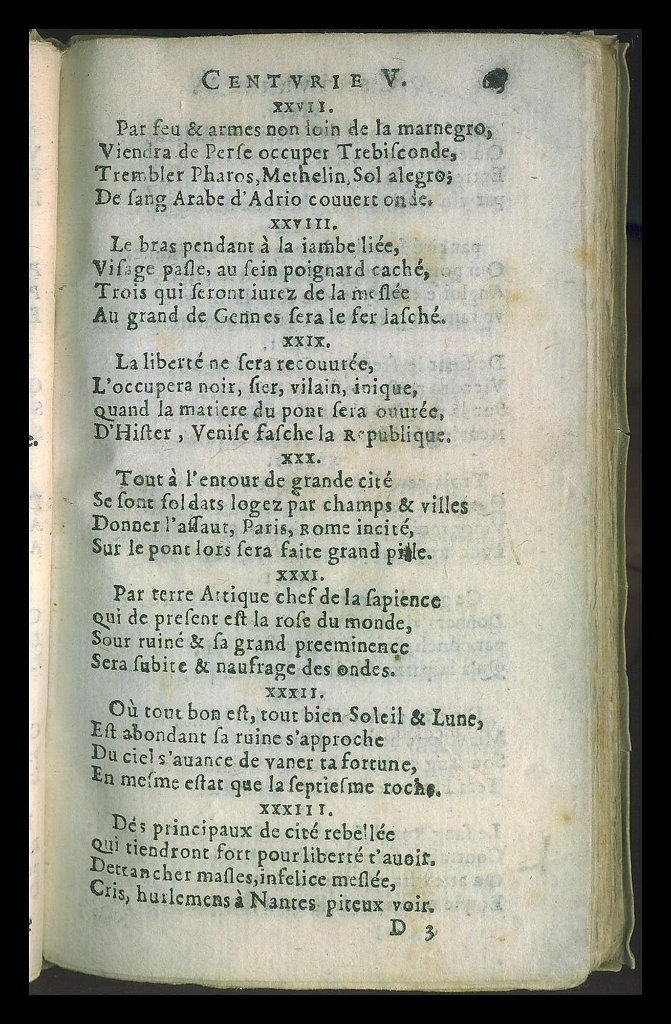 CENTVRIE V.
XXVII.
Par feu & armes non loin de la marnegro,
Viendra de Perſe occuper Trebiſconde,
Trembler Pharos, Methelin, Sol alegro;
De ſang Arabe d'Adrio couuert onde.
XXVIII.
Le bras pendant à la iambe liée,
Viſage paſle, au ſein poignard caché,
Trois qui ſeront iurez de la meſlée
Au grand de Gennes ſera le fer laſché.
XXIX.
La liberté ne ſera recouurée,
L'occupera noir, fier, vilain, inique,
quand la matiere du pont ſera ouurée,
D'Hiſter, Veniſe faſche la Republique.
XXX.
Tout à l'entour de grande cité
Se ſont ſoldats logez par champs & villes
Donner l'aſſaut, Paris, Rome incité,
Sur le pont lors ſera faite grand pille.
XXXI.
Par terre Attique chef de la ſapience
qui de preſent eſt la roſe du monde,
Sour ruiné & ſa grand preeminence
Sera ſubite & naufrage des ondes.
XXXII.
Où tout bon eſt, tout bien Soleil & Lune,
Eſt abondant ſa ruine s'approche
Du ciel s'auance de vaner ta fortune,
En meſme eſtat que la ſeptieſme roche.
XXXIII.
Dés principaux de cité rebellée
qui tiendront fort pour liberté t'auoir.
Dettancher maſles, infelice meſlée,
Cris, hurlemens à Nantes piteux voir.
D 3